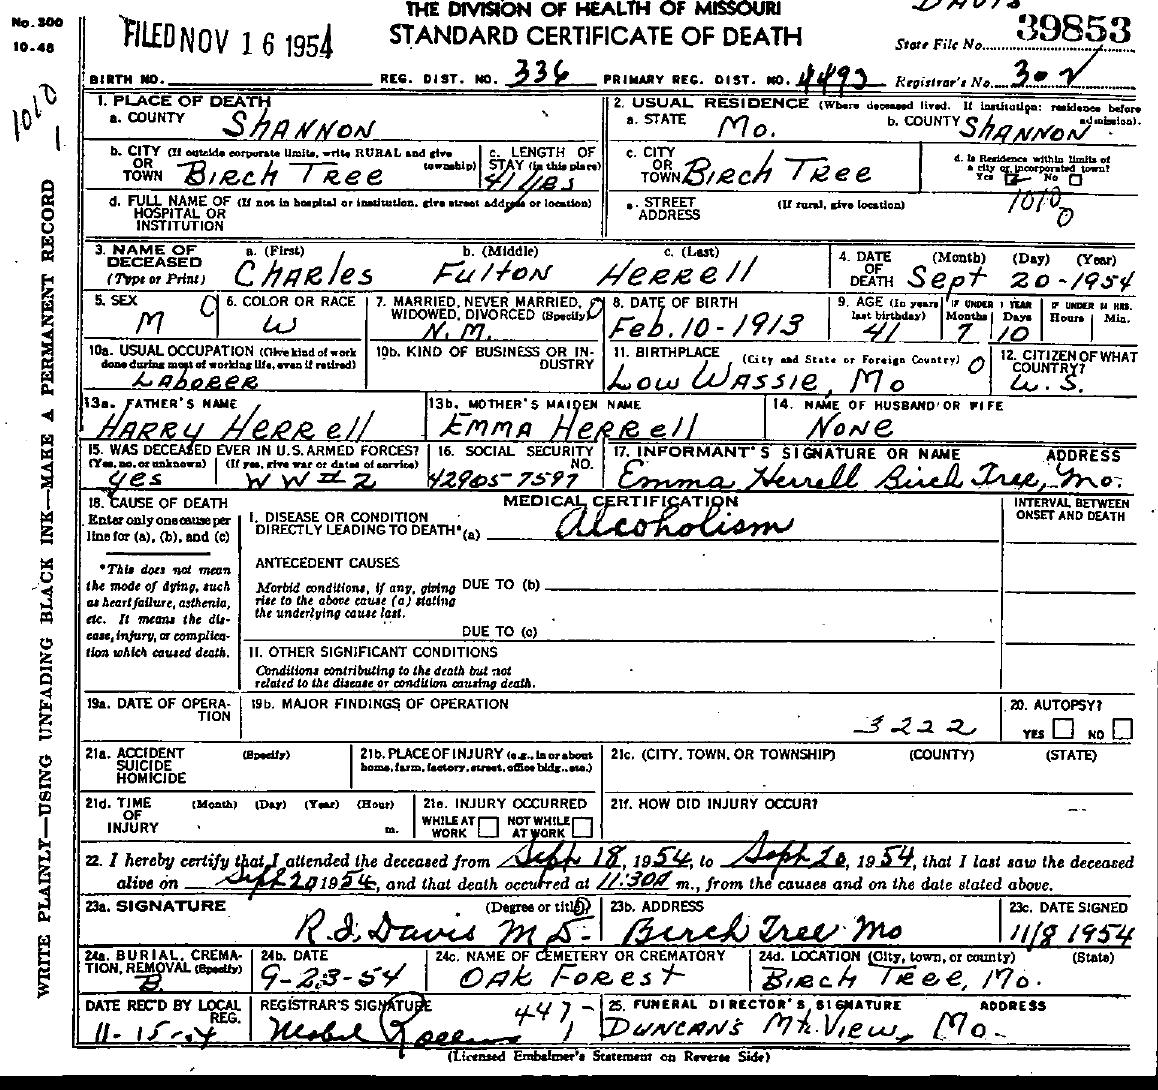 THE DIVISION OF HEALTH OF MISSOURI
STANDARD CERTIFICATE OF DEATH
No. 300
10-48
FILED NOV 16 1954
DAVIS
State File No. 39853
BIRTH NO. REG. DIST. NO. 336 PRIMARY REG. DIST. NO. 4493 Registrar's No. 302
1010
1
WRITE PLAINLY—USING UNFADING BLACK INK—MAKE A PERMANENT RECORD
1. PLACE OF DEATH
a. COUNTY SHANNON
2. USUAL RESIDENCE (Where deceased lived. If institution: residence before admission).
a. STATE Mo. b. COUNTY SHANNON
b. CITY (If outside corporate limits, write RURAL and give township) OR TOWN BIRCH TREE
c. LENGTH OF STAY (in this place) 41 Yrs
c. CITY OR TOWN BIRCH TREE
d. Is Residence within limits of a city or incorporated town? Yes No
d. FULL NAME OF HOSPITAL OR INSTITUTION (If not in hospital or institution, give street address or location)
e. STREET ADDRESS (If rural, give location)
1010
0
3. NAME OF DECEASED (Type or Print)
a. (First) CHARLES b. (Middle) FULTON c. (Last) HERRELL
4. DATE OF DEATH (Month) (Day) (Year) Sept 20-1954
5. SEX M 0
6. COLOR OR RACE W
7. MARRIED, NEVER MARRIED, WIDOWED, DIVORCED (Specify) N.M. 0
8. DATE OF BIRTH Feb. 10-1913
9. AGE (In years last birthday) 41
IF UNDER 1 YEAR Months 7 Days 10
IF UNDER 24 HRS. Hours Min.
10a. USUAL OCCUPATION (Give kind of work done during most of working life, even if retired) LABORER
10b. KIND OF BUSINESS OR INDUSTRY
11. BIRTHPLACE (City and State or Foreign Country) LOW WASSIE, MO 0
12. CITIZEN OF WHAT COUNTRY? U.S.
13a. FATHER'S NAME HARRY HERRELL
13b. MOTHER'S MAIDEN NAME EMMA HERRELL
14. NAME OF HUSBAND OR WIFE NONE
15. WAS DECEASED EVER IN U.S. ARMED FORCES?
(Yes, no, or unknown) yes (If yes, give war or dates of service) WW II 2
16. SOCIAL SECURITY NO. 42905-7597
17. INFORMANT'S SIGNATURE OR NAME ADDRESS
Emma Herrell Birch Tree, Mo.
18. CAUSE OF DEATH
Enter only one cause per line for (a), (b), and (c)
*This does not mean the mode of dying, such as heart failure, asthenia, etc. It means the disease, injury, or complication which caused death.
MEDICAL CERTIFICATION
INTERVAL BETWEEN ONSET AND DEATH
I. DISEASE OR CONDITION DIRECTLY LEADING TO DEATH* (a) Alcoholism
ANTECEDENT CAUSES
Morbid conditions, if any, giving rise to the above cause (a) stating the underlying cause last.
DUE TO (b)
DUE TO (c)
II. OTHER SIGNIFICANT CONDITIONS
Conditions contributing to the death but not related to the disease or condition causing death.
19a. DATE OF OPERATION
19b. MAJOR FINDINGS OF OPERATION
3222
20. AUTOPSY?
YES NO
21a. ACCIDENT SUICIDE HOMICIDE (Specify)
21b. PLACE OF INJURY (e.g., in or about home, farm, factory, street, office bldg., etc.)
21c. (CITY, TOWN, OR TOWNSHIP) (COUNTY) (STATE)
21d. TIME OF INJURY (Month) (Day) (Year) (Hour) m.
21e. INJURY OCCURRED
WHILE AT WORK NOT WHILE AT WORK
21f. HOW DID INJURY OCCUR?
22. I hereby certify that I attended the deceased from Sept 18, 1954, to Sept 20, 1954, that I last saw the deceased
alive on Sept 20 1954, and that death occurred at 11:30A m., from the causes and on the date stated above.
23a. SIGNATURE (Degree or title) R. I. Davis M D
23b. ADDRESS Birch Tree Mo
23c. DATE SIGNED 11/8 1954
24a. BURIAL, CREMATION, REMOVAL (Specify) B
24b. DATE 9-23-54
24c. NAME OF CEMETERY OR CREMATORY OAK FOREST
24d. LOCATION (City, town, or county) (State) BIRCH TREE, Mo.
DATE REC'D BY LOCAL REG. 11-15-54
REGISTRAR'S SIGNATURE Mabel
447-1
25. FUNERAL DIRECTOR'S SIGNATURE ADDRESS
DUNCAN'S Mt. VIEW, Mo.
(Licensed Embalmer's Statement on Reverse Side)